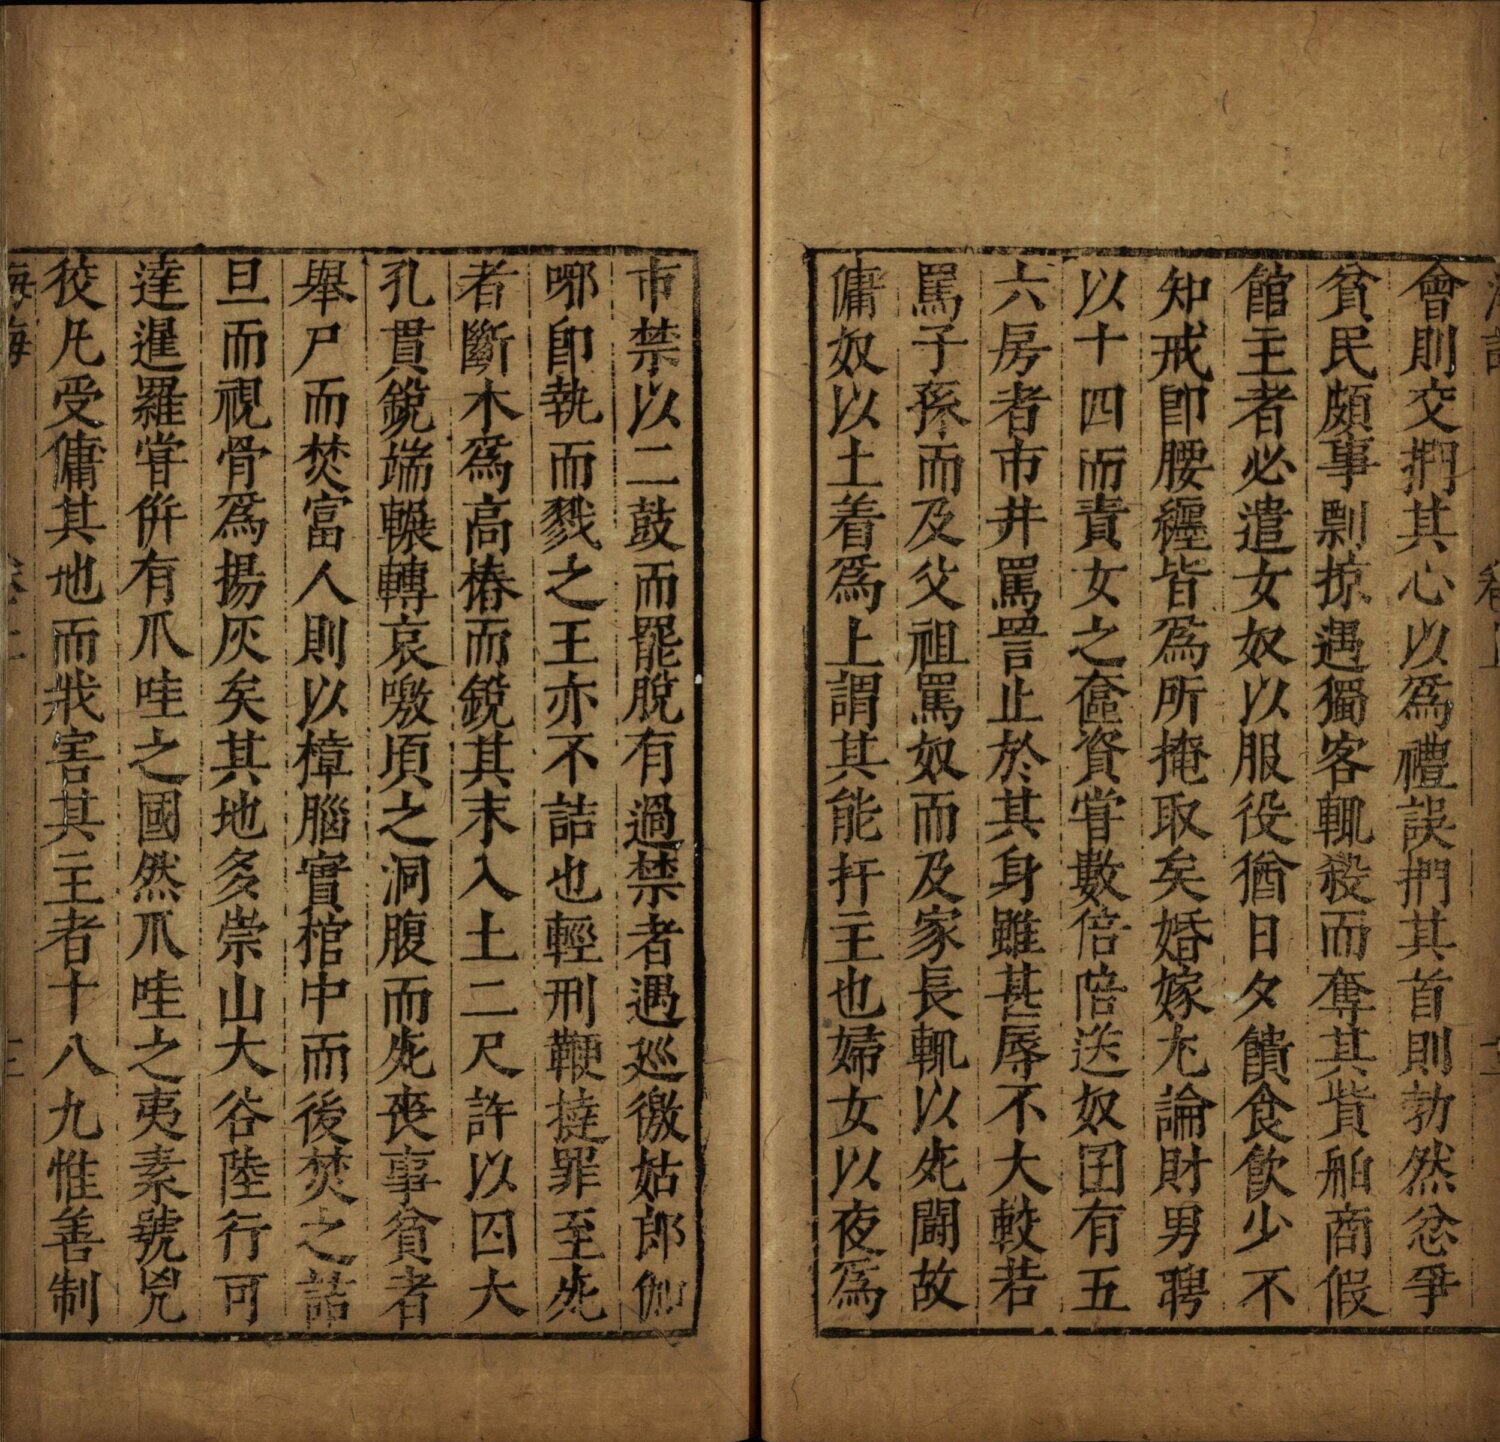 會則交捫其心以爲禮誤捫其首則勃然忿爭
貧民頗事剽掠遇獨客輒殺而奪其貲舶商假
館主者必遣女奴以服役猶日夕饋食飲少不
知戒卽腰纏皆爲所掩取矣婚嫁尢論財男聘
以十四而責女之奩資甞數倍陪送奴囝有五
六房者市井罵詈止於其身雖甚辱不大較若
罵子孫而及父祖罵奴而及家長輒以死鬭故
傭奴以土着爲上謂其能扞主也婦女以夜爲
市禁以二鼓而罷脫有過禁者遇廵徼姑郎伽
哪卽執而戮之王亦不詰也輕刑鞭撻罪至死
者斷木爲高樁而銳其末入土二尺許以囚大
孔貫銳端輾轉哀噭頃之洞腹而死喪事貧者
舉尸而焚富人則以樟腦實棺中而後焚之詰
旦而視骨爲揚灰矣其地多崇山大谷陸行可
達暹羅甞併有爪哇之國然爪哇之夷素號兇
狡凡受傭其地而戕害其主者十八九惟善制